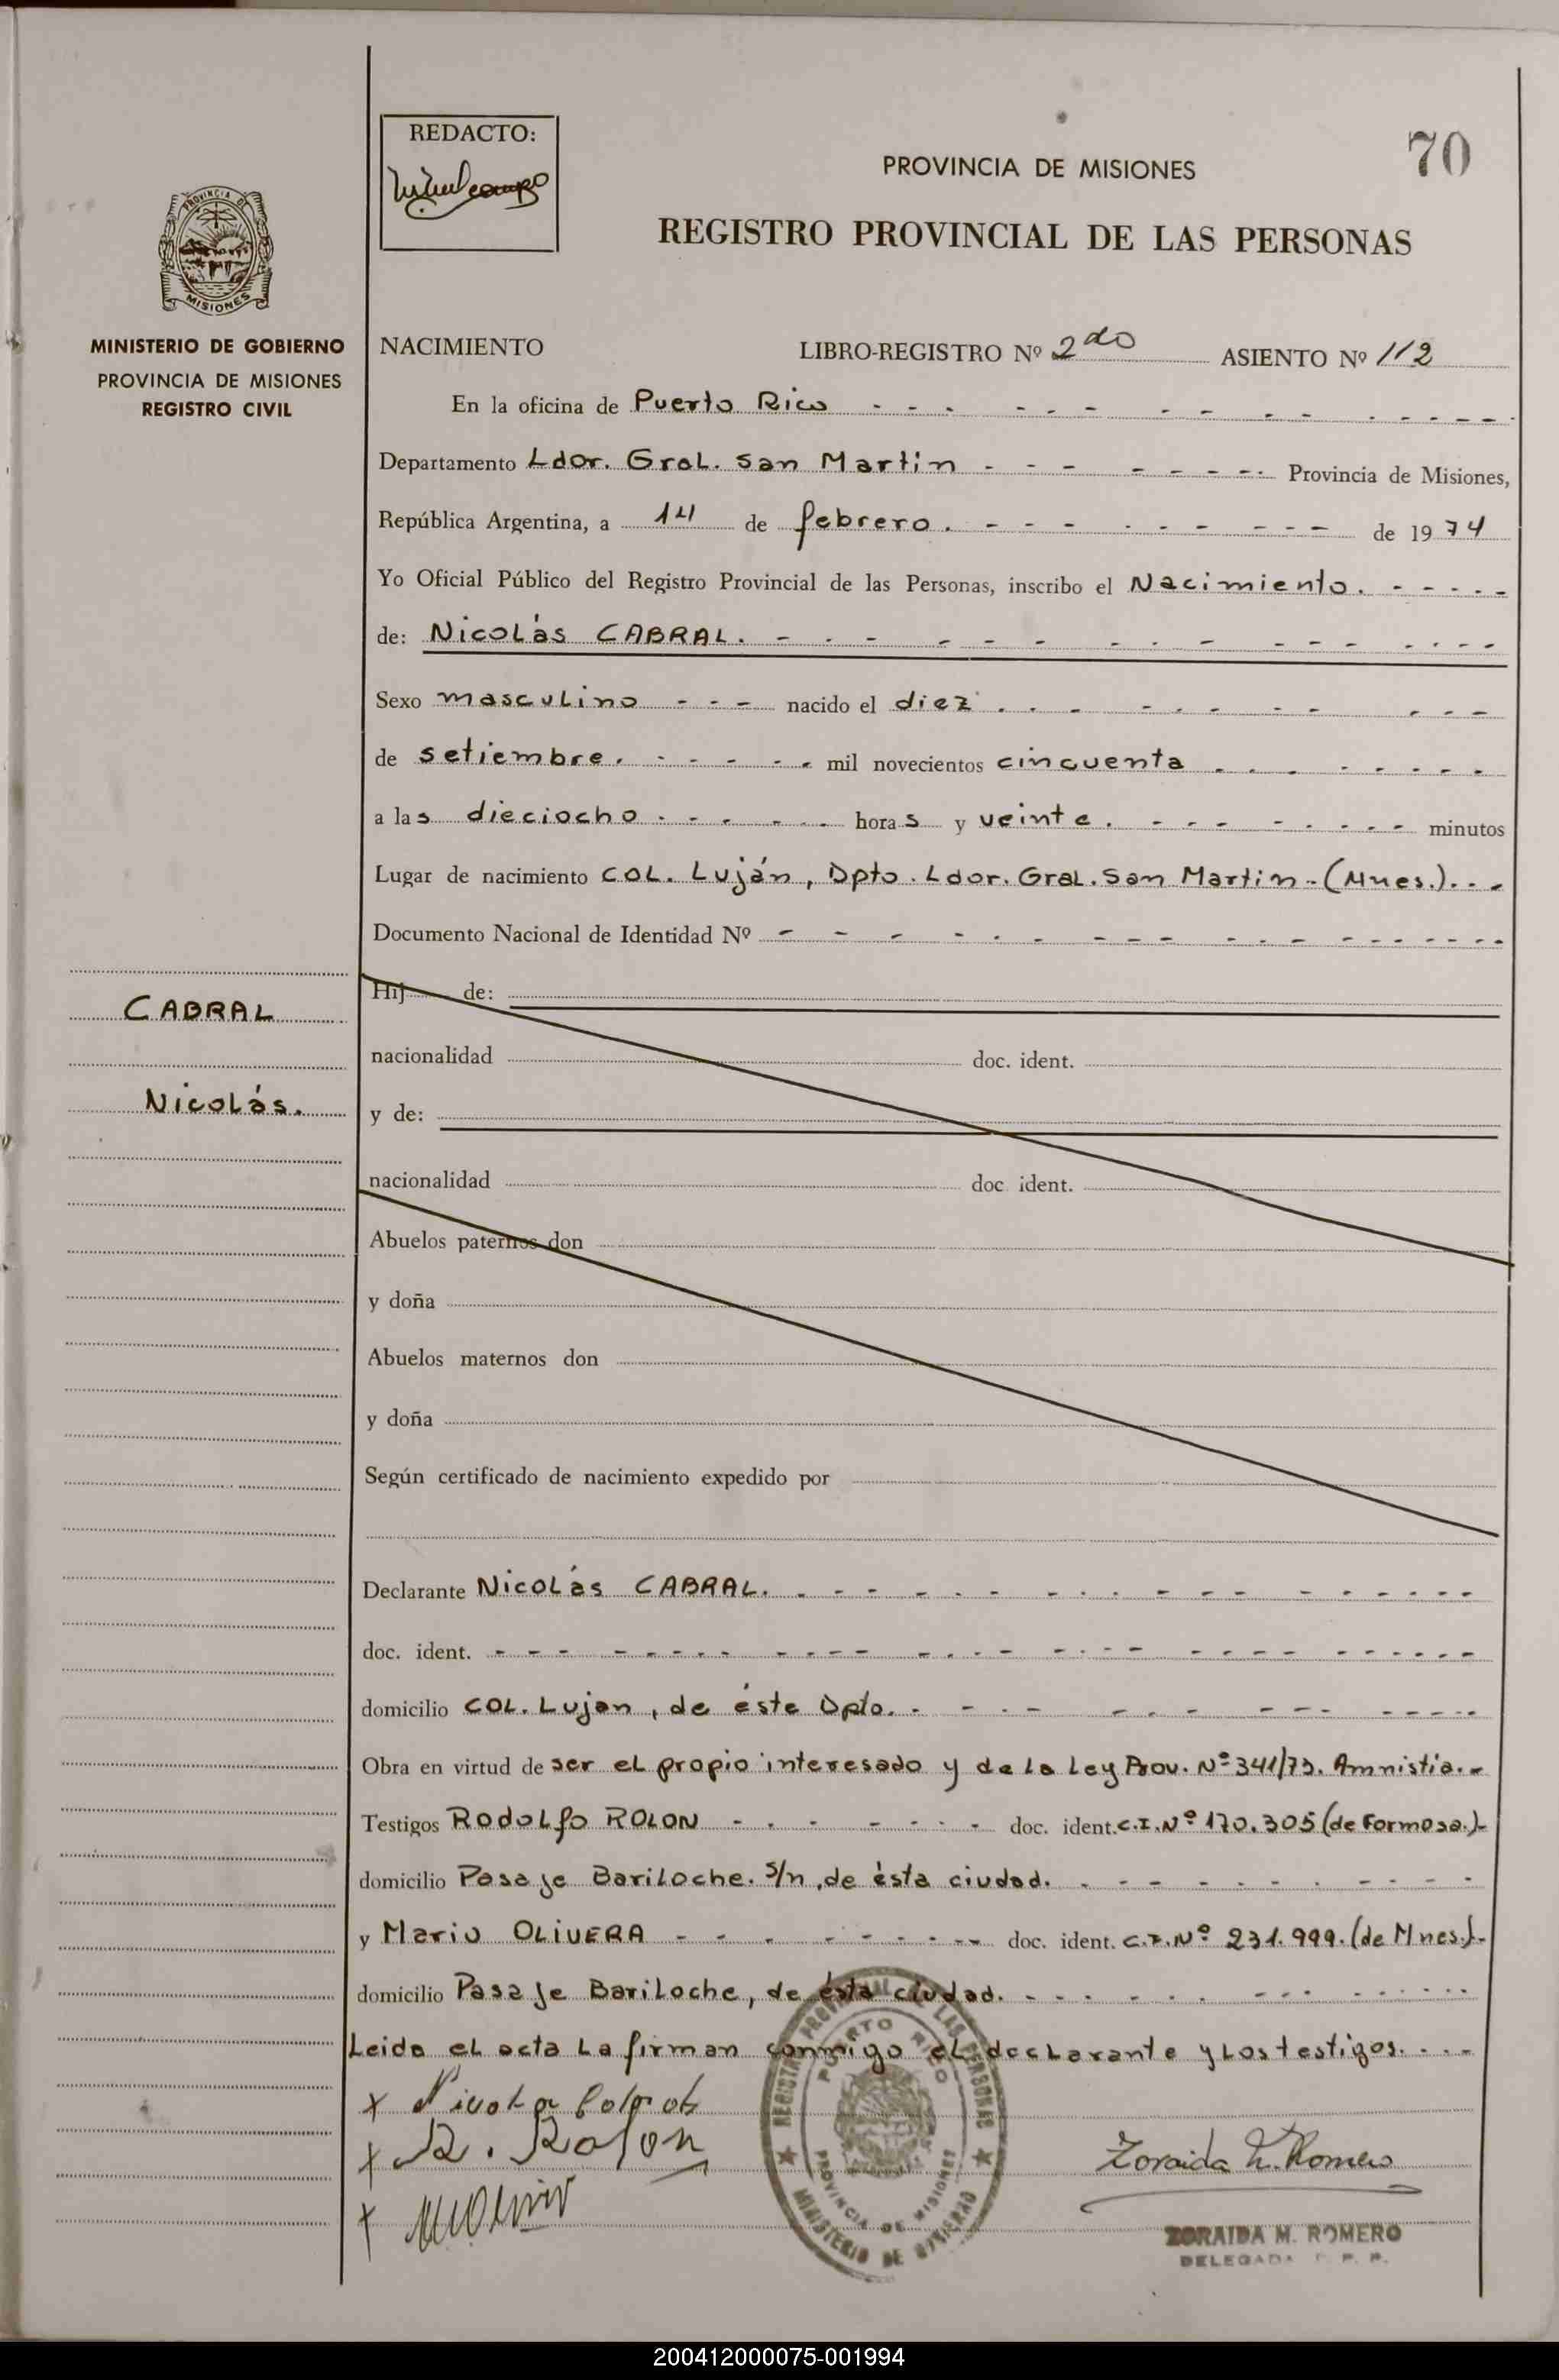 REDACTO:
PROVINCIA DE MISIONES
70
REGISTRO PROVINCIAL DE LAS PERSONAS
PROVINCIA DE
MISIONES
MINISTERIO DE GOBIERNO
PROVINCIA DE MISIONES
REGISTRO CIVIL
NACIMIENTO LIBRO-REGISTRO Nº 2do ASIENTO Nº 112
En la oficina de Puerto Rico
Departamento Ldor. Gral. San Martin Provincia de Misiones,
República Argentina, a 14 de febrero. de 1974
Yo Oficial Público del Registro Provincial de las Personas, inscribo el Nacimiento.
de: Nicolás CABRAL.
Sexo masculino nacido el diez
de setiembre. mil novecientos cincuenta
a las dieciocho horas y veinte. minutos
Lugar de nacimiento COL. Luján, Dpto. Ldor. Gral. San Martin - (Mnes.)
Documento Nacional de Identidad Nº
CABRAL
Nicolás.
Hij de:
nacionalidad doc. ident.
y de:
nacionalidad doc ident.
Abuelos paternos don
y doña
Abuelos maternos don
y doña
Según certificado de nacimiento expedido por
Declarante Nicolás CABRAL.
doc. ident.
domicilio COL. Lujan, de éste Dpto.
Obra en virtud de ser el propio interesado y de la Ley Prov. Nº 341/73. Amnistía.
Testigos Rodolfo ROLON doc. ident. C.I. Nº 170.305 (de Formosa.)
domicilio Pasaje Bariloche. S/n, de ésta ciudad.
y Mario OLIVERA doc. ident. C.I. Nº 231.999. (de Mnes.)
domicilio Pasaje Bariloche, de ésta ciudad.
Leida el acta la firman conmigo el declarante y los testigos.
x
x R. Rolon
x
REGISTRO PROVINCIAL DE LAS PERSONAS
PUERTO RICO
PROVINCIA DE MISIONES
MINISTERIO DE GOBIERNO
Zoraida M. Romero
ZORAIDA M. ROMERO
DELEGADA R. P. P.
200412000075-001994